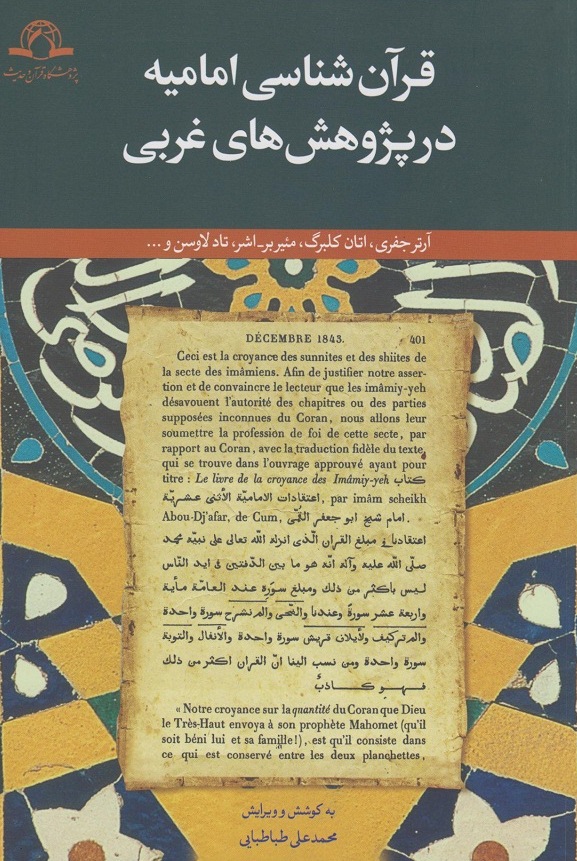 پژوهشگاه قرآن و حدیث
قرآن شناسی امامیه
در پژوهش های غربی
آرتر جفری، اتان کلبرگ، مئیر بر-اشر، تاد لاوسن و ...
DÉCEMBRE 1843. 401
Ceci est la croyance des sunnites et des shiites de
la secte des imâmiens. Afin de justifier notre asser-
tion et de convaincre le lecteur que les imâmiy-yeh
désavouent l'autorité des chapitres ou des parties
supposées inconnues du Coran, nous allons leur
soumettre la profession de foi de cette secte, par
rapport au Coran, avec la traduction fidèle du texte,
qui se trouve dans l'ouvrage approuvé ayant pour
titre : Le livre de la croyance des Imâmiy-yeh كتاب
اعتقادات الامامیّة الاثنی عشریّة, par imâm scheikh
Abou-Dj'afar, de Cum, امام شیخ ابو جعفر القُمّی.
اعتقادنا فی مبلغ القران الّذی انزله اللّه تعالی علی نبیّه محمد
صلّی اللّه علیه وآله انّه هو ما بین الدّفتین فی اید النّاس
لیس باكثر من ذلك ومبلغ سورة عند العامّة مأیة
واربعة عشر سورة وعندنا والضّحی والم نشرح سورة واحدة
والم تركیف ولأیلاف قریش سورة واحدة والأنفال والتوبة
سورة واحدة ومن نسب الینا انّ القران اكثر من ذلك
فهو كاذبٌ
« Notre croyance sur la quantité du Coran que Dieu
le Très-Haut envoya à son prophète Mahomet (qu'il
soit béni lui et sa famille!), est qu'il consiste dans
ce qui est conservé entre les deux planchettes,
به کوشش و ویرایش
محمدعلی طباطبایی